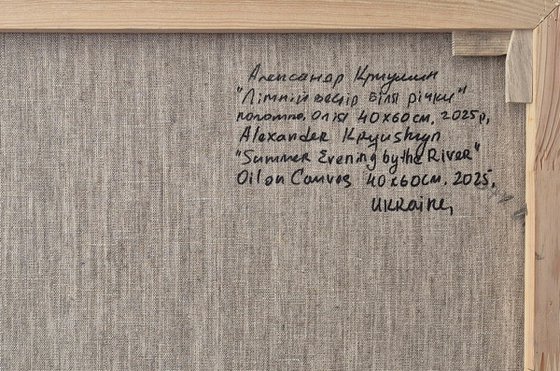 Александр Крюшин
"Літній вечір біля річки"
полотно, олія 40х60см, 2025р,
Alexander Kryushyn
"Summer Evening by the River"
Oil on Canvas 40x60см. 2025,
Ukraine,